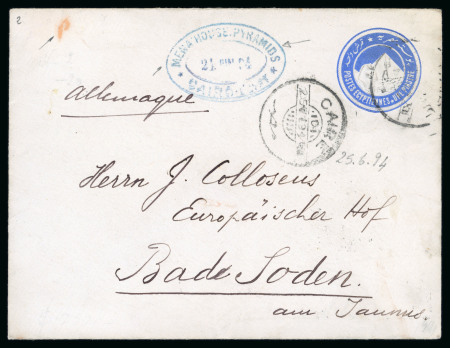 2
MENA HOUSE. PYRAMIDS
CAIRO
POSTES EGYPTIENNES
PIASTRE
Allemagne
CAIRE
25.6.94
Herrn J. Colloseus
Europäischer Hof
Bad Soden
am Taunus.